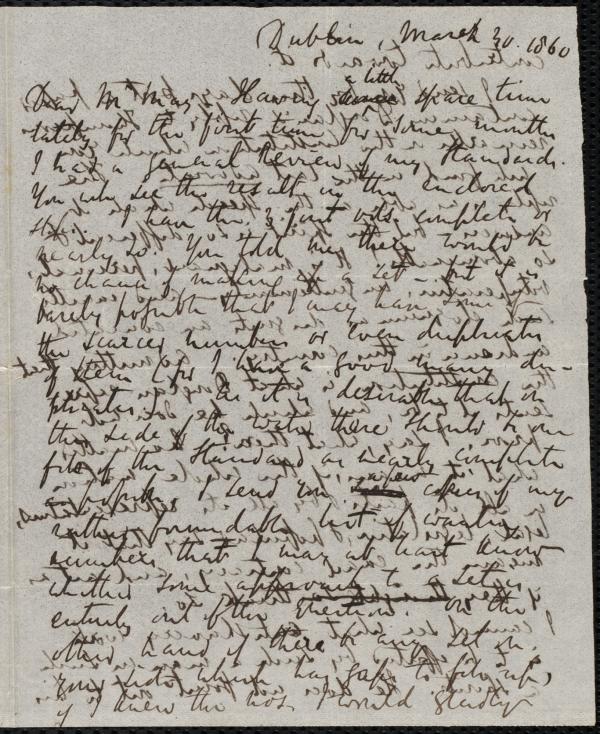 Dublin, March 30. 1860
Dear Mr May, Having a little spare time
lately for the first time for some months
I had a general Review of my Standards.
You will see the result in the enclosed
slip. I have the 3 first vols. complete or
nearly so. You told me there would be
no chance of making up a set - but it is
barely possible that I may have some of
the scarcer numbers or even duplicates
of them (for I have a good many du-
plicates). As it is desirable that on
this side of the water there should be one
file of the Standard as nearly complete
as possible, I send you a few copies of my
rather formidable list of wanting
numbers that I may at least know
whether some approach to a set is
entirely out of the question. On the
other hand if there be any set in
your vols which has gaps to fill up,
if I knew the nos. I would gladly